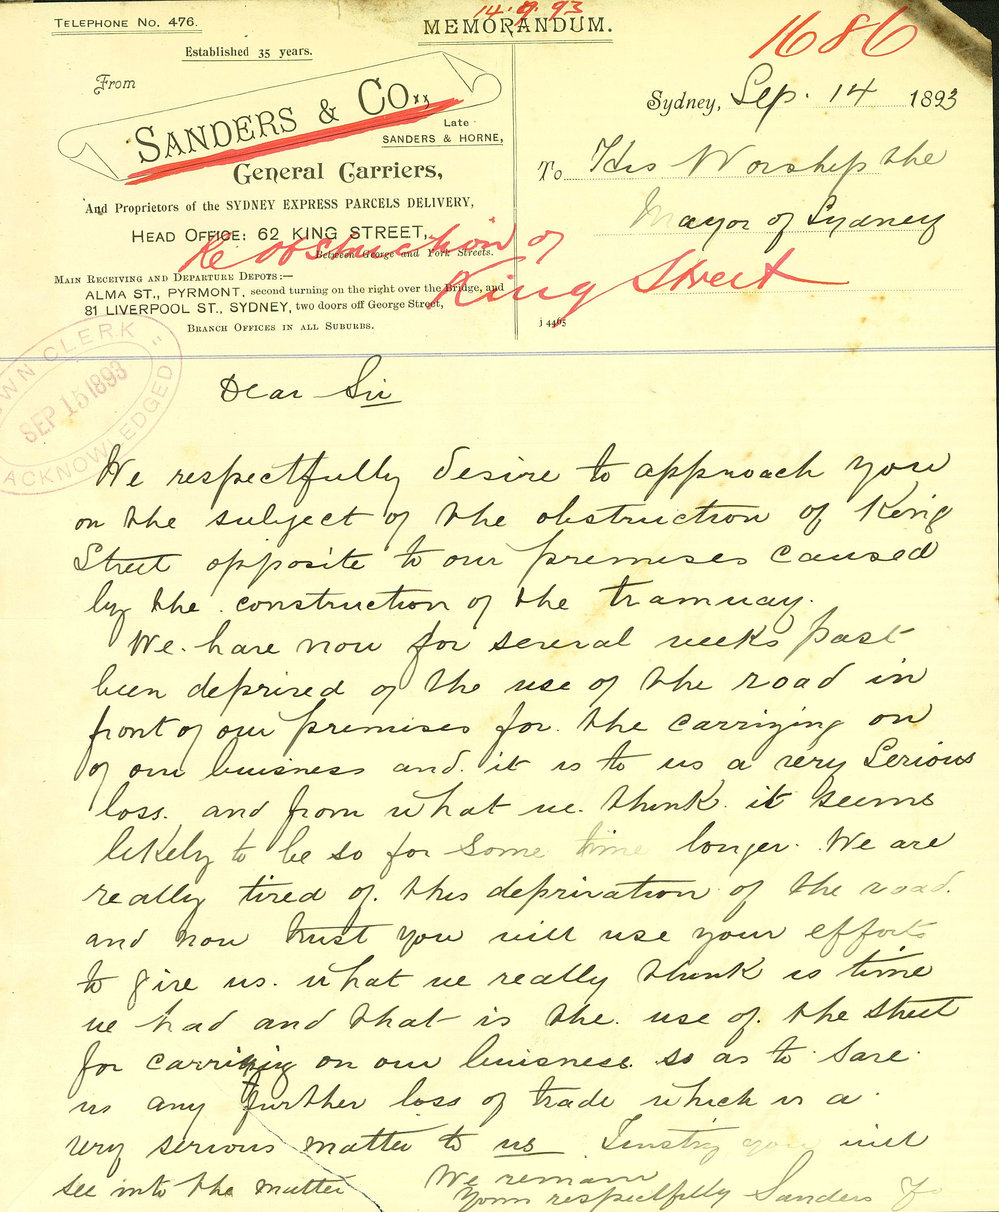 TELEPHONE NO. 476.
14.9.93
MEMORANDUM.
1686
Established 35 years.
From
SANDERS & Co.,
Late
SANDERS & HORNE,
General Carriers,
And Proprietors of the SYDNEY EXPRESS PARCELS DELIVERY,
HEAD OFFICE: 62 KING STREET,
Between George and York Streets.
MAIN RECEIVING AND DEPARTURE DEPOTS:—
ALMA ST., PYRMONT, second turning on the right over the Bridge, and
81 LIVERPOOL ST., SYDNEY, two doors off George Street,
BRANCH OFFICES IN ALL SUBURBS.
Sydney, Sep. 14 1893
To His Worship the
Mayor of Sydney
Re obstruction of
King Street
j 4465
TOWN CLERK
SEP 15 1893
ACKNOWLEDGED
Dear Sir
We respectfully desire to approach you
on the subject of the obstruction of King
Street opposite to our premises caused
by the construction of the tramway.
We have now for several weeks past
been deprived of the use of the road in
front of our premises for the carrizing on
of our buisness and it is to us a very Serious
loss. and from what we think it seems
likely to be so for some time longer. We are
really tired of this deprivation of the road.
and now trust you will use your efforts
to give us what we really think is time
we had and that is the use of the street
for carrying on our buisness so as to save
us any further loss of trade which is a
very serious matter to us Trusting you will
see into the matter We remain
Yours respectfully Sanders &